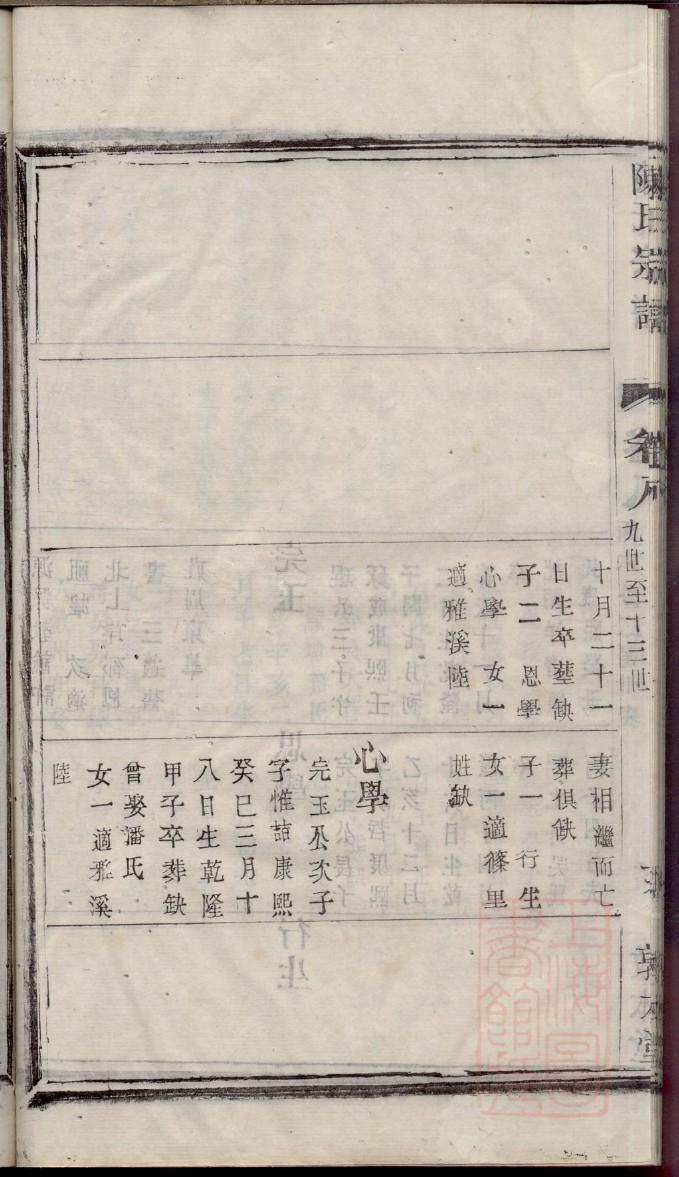 陳氏宗譜
卷八
九世至十三世
敦本堂
十月二十一
日生卒塟缺
子二　恩學
心學　女一
適雅溪陸
妻相繼而亡
葬俱缺
子一　行生
女一適篠里
姓缺
心學
完玉公次子
字惟喆康熙
癸巳三月十
八日生乾隆
甲子卒葬缺
曾娶潘氏
女一適雅溪
陸